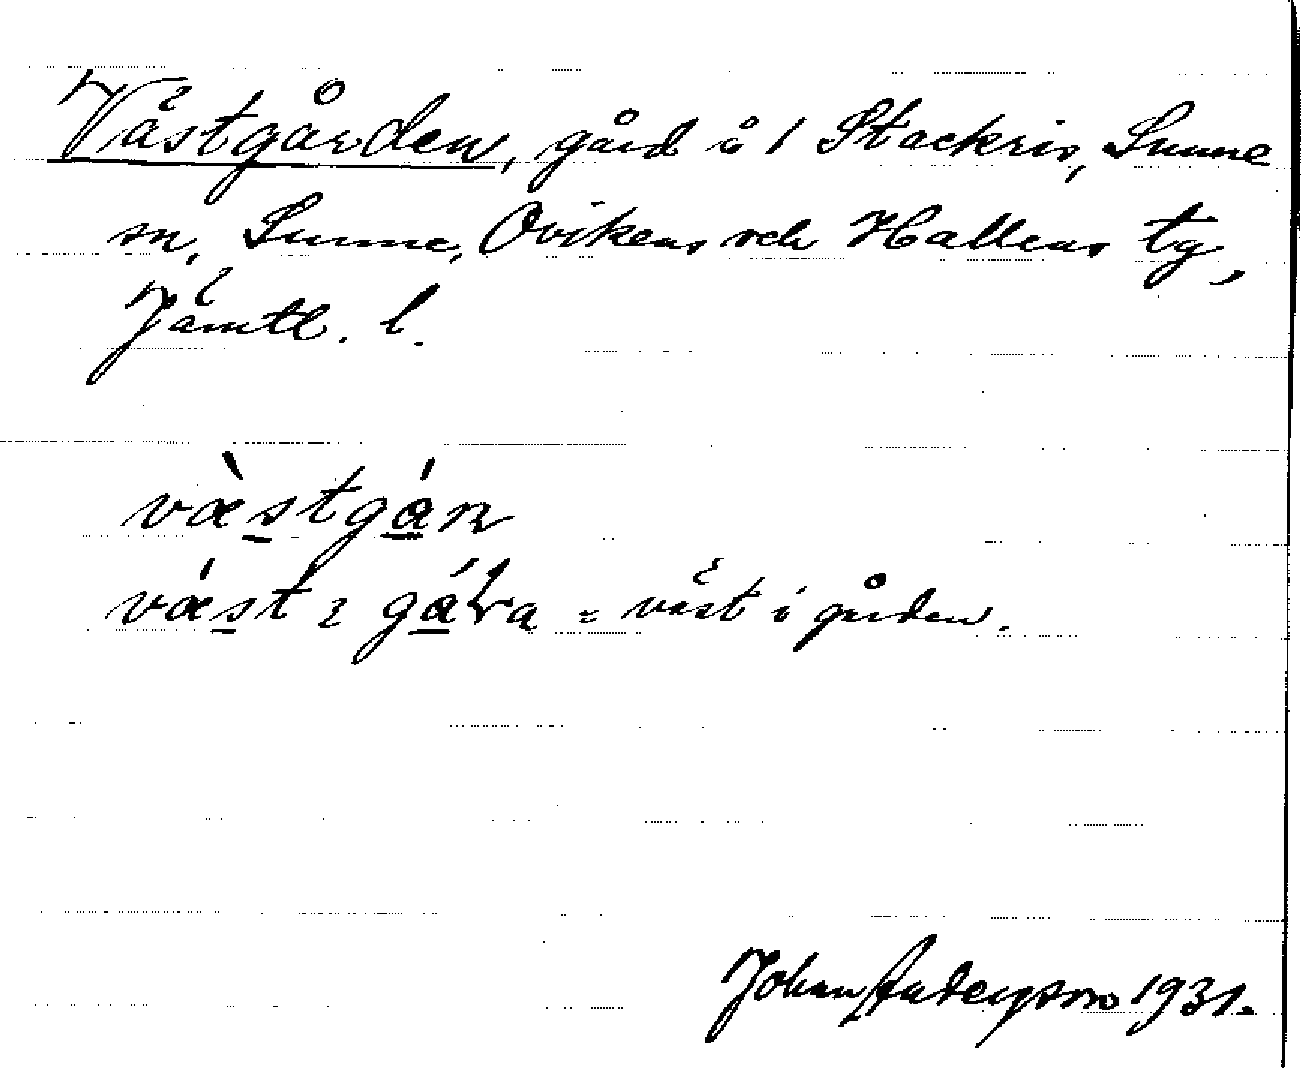 Västgården, gård å 1 Stackris, Sunne
sn, Sunne, Ovikens och Hallens tg,
Jämtl. l.
væ̀stgán
vǽst gára = väst i gården.
Johan Anderson 1931.